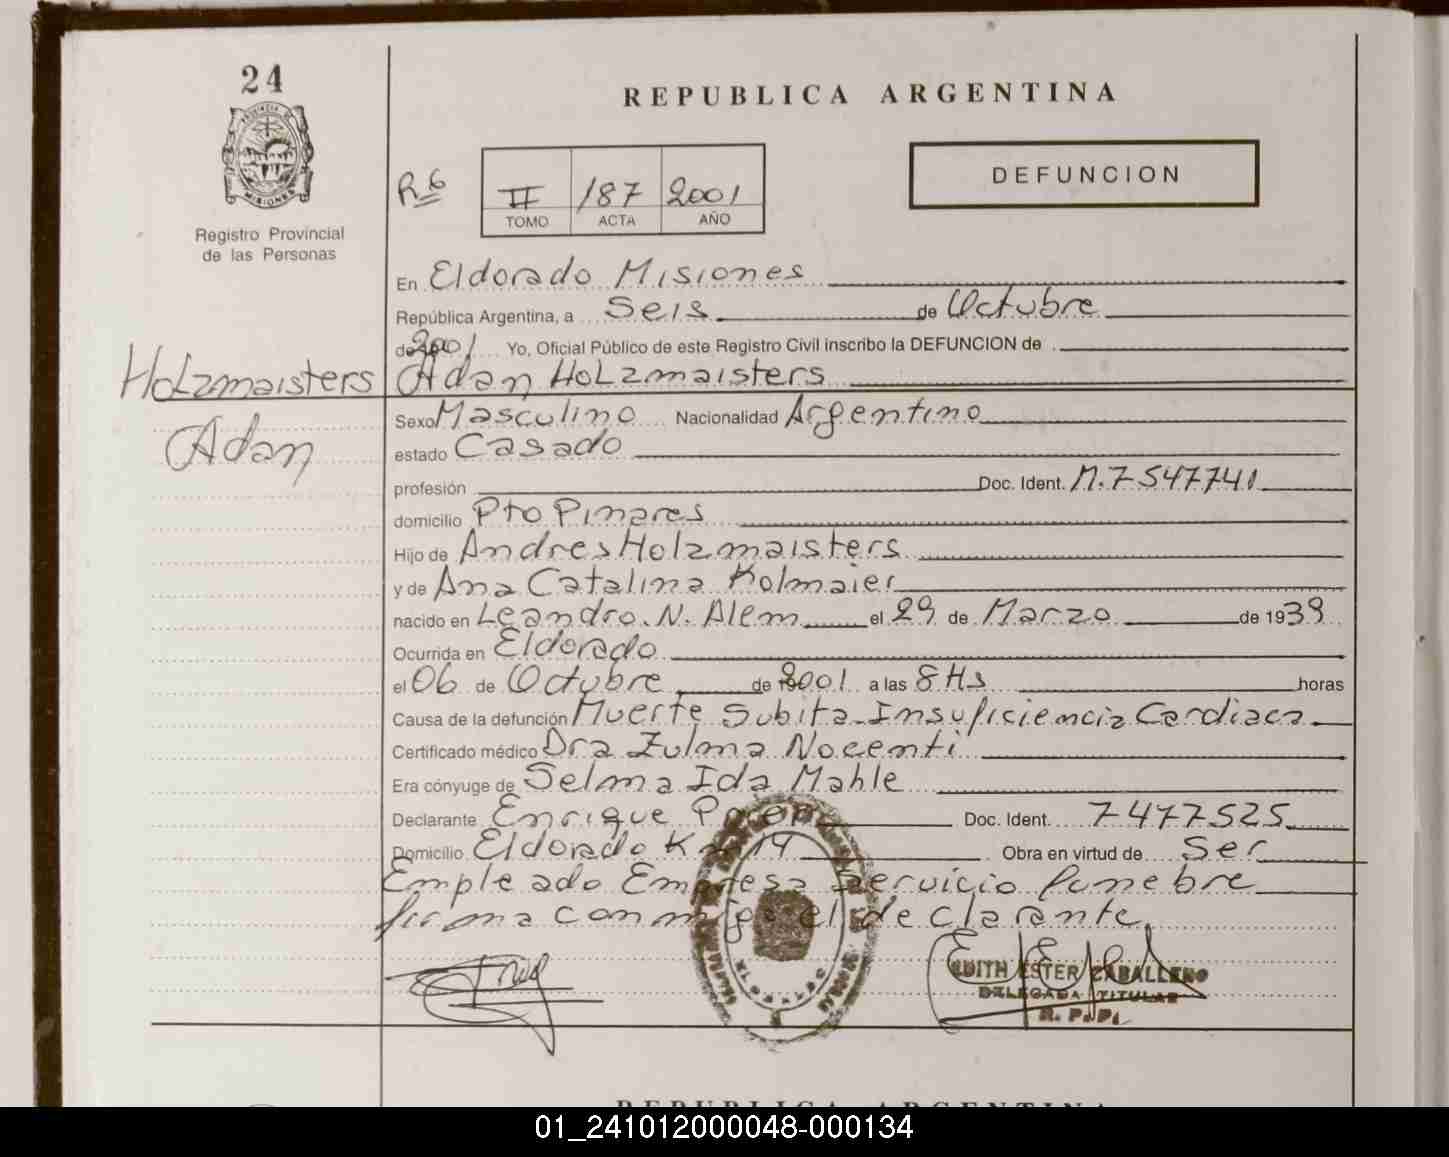 24
PROVINCIA DE
MISIONES
Registro Provincial
de las Personas
REPUBLICA ARGENTINA
DEFUNCION
R6 II 187 2001
TOMO ACTA AÑO
En Eldorado Misiones
República Argentina, a Seis de Octubre
de 2001 Yo, Oficial Público de este Registro Civil inscribo la DEFUNCION de
Holzmaisters Adan Holzmaisters
Adan
Sexo Masculino Nacionalidad Argentino
estado Casado
profesión Doc. Ident. M.7547741
domicilio Pto Pinares
Hijo de Andres Holzmaisters
y de Ana Catalina Kolmaier
nacido en Leandro. N. Alem el 29 de Marzo de 1939
Ocurrida en Eldorado
el 06 de Octubre de 2001 a las 8 Hs horas
Causa de la defunción Muerte Subita-Insuficiencia Cardiaca
Certificado médico Dra Zulma Nocenti
Era cónyuge de Selma Ida Mahle
Declarante Enrique Doc. Ident. 7477525
Domicilio Eldorado Km 19 Obra en virtud de Ser
Empleado Empresa Servicio funebre
firma conmigo el declarante
EDITH ESTER CABALLERO
DELEGADA TITULAR
R. P. P.
REPUBLICA ARGENTINA
01_241012000048-000134